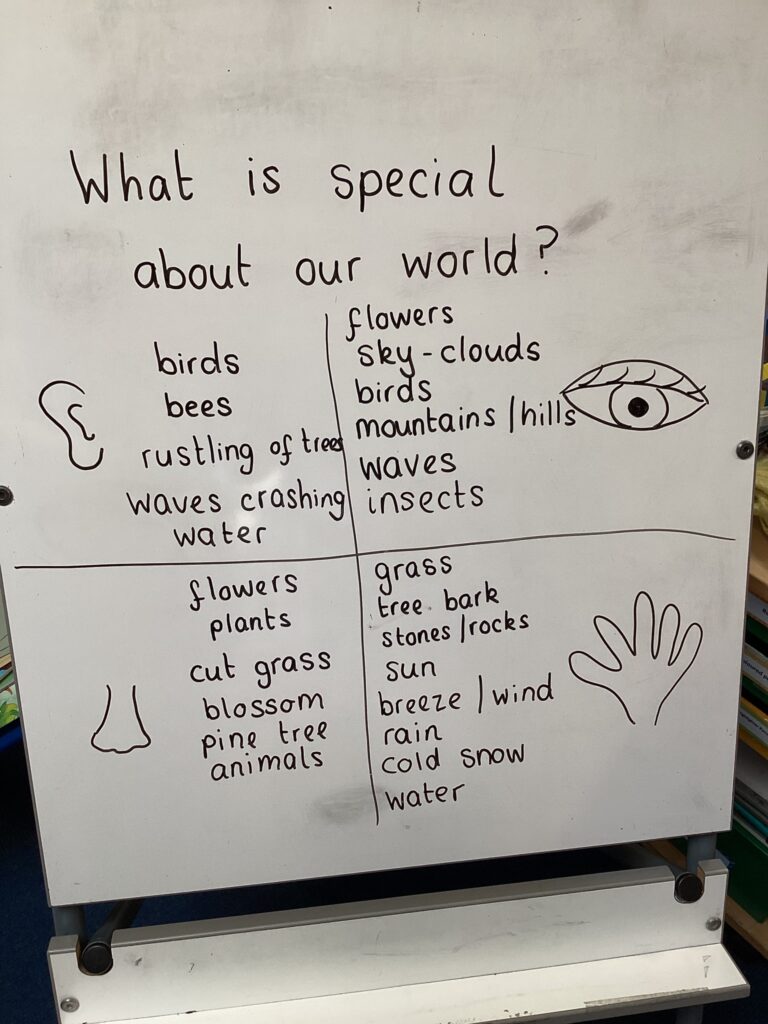 What is special
about our world?
birds
bees
rustling of trees
waves crashing
water
flowers
sky-clouds
birds
mountains/hills
waves
insects
flowers
plants
cut grass
blossom
pine tree
animals
grass
tree bark
stones/rocks
sun
breeze/wind
rain
cold snow
water